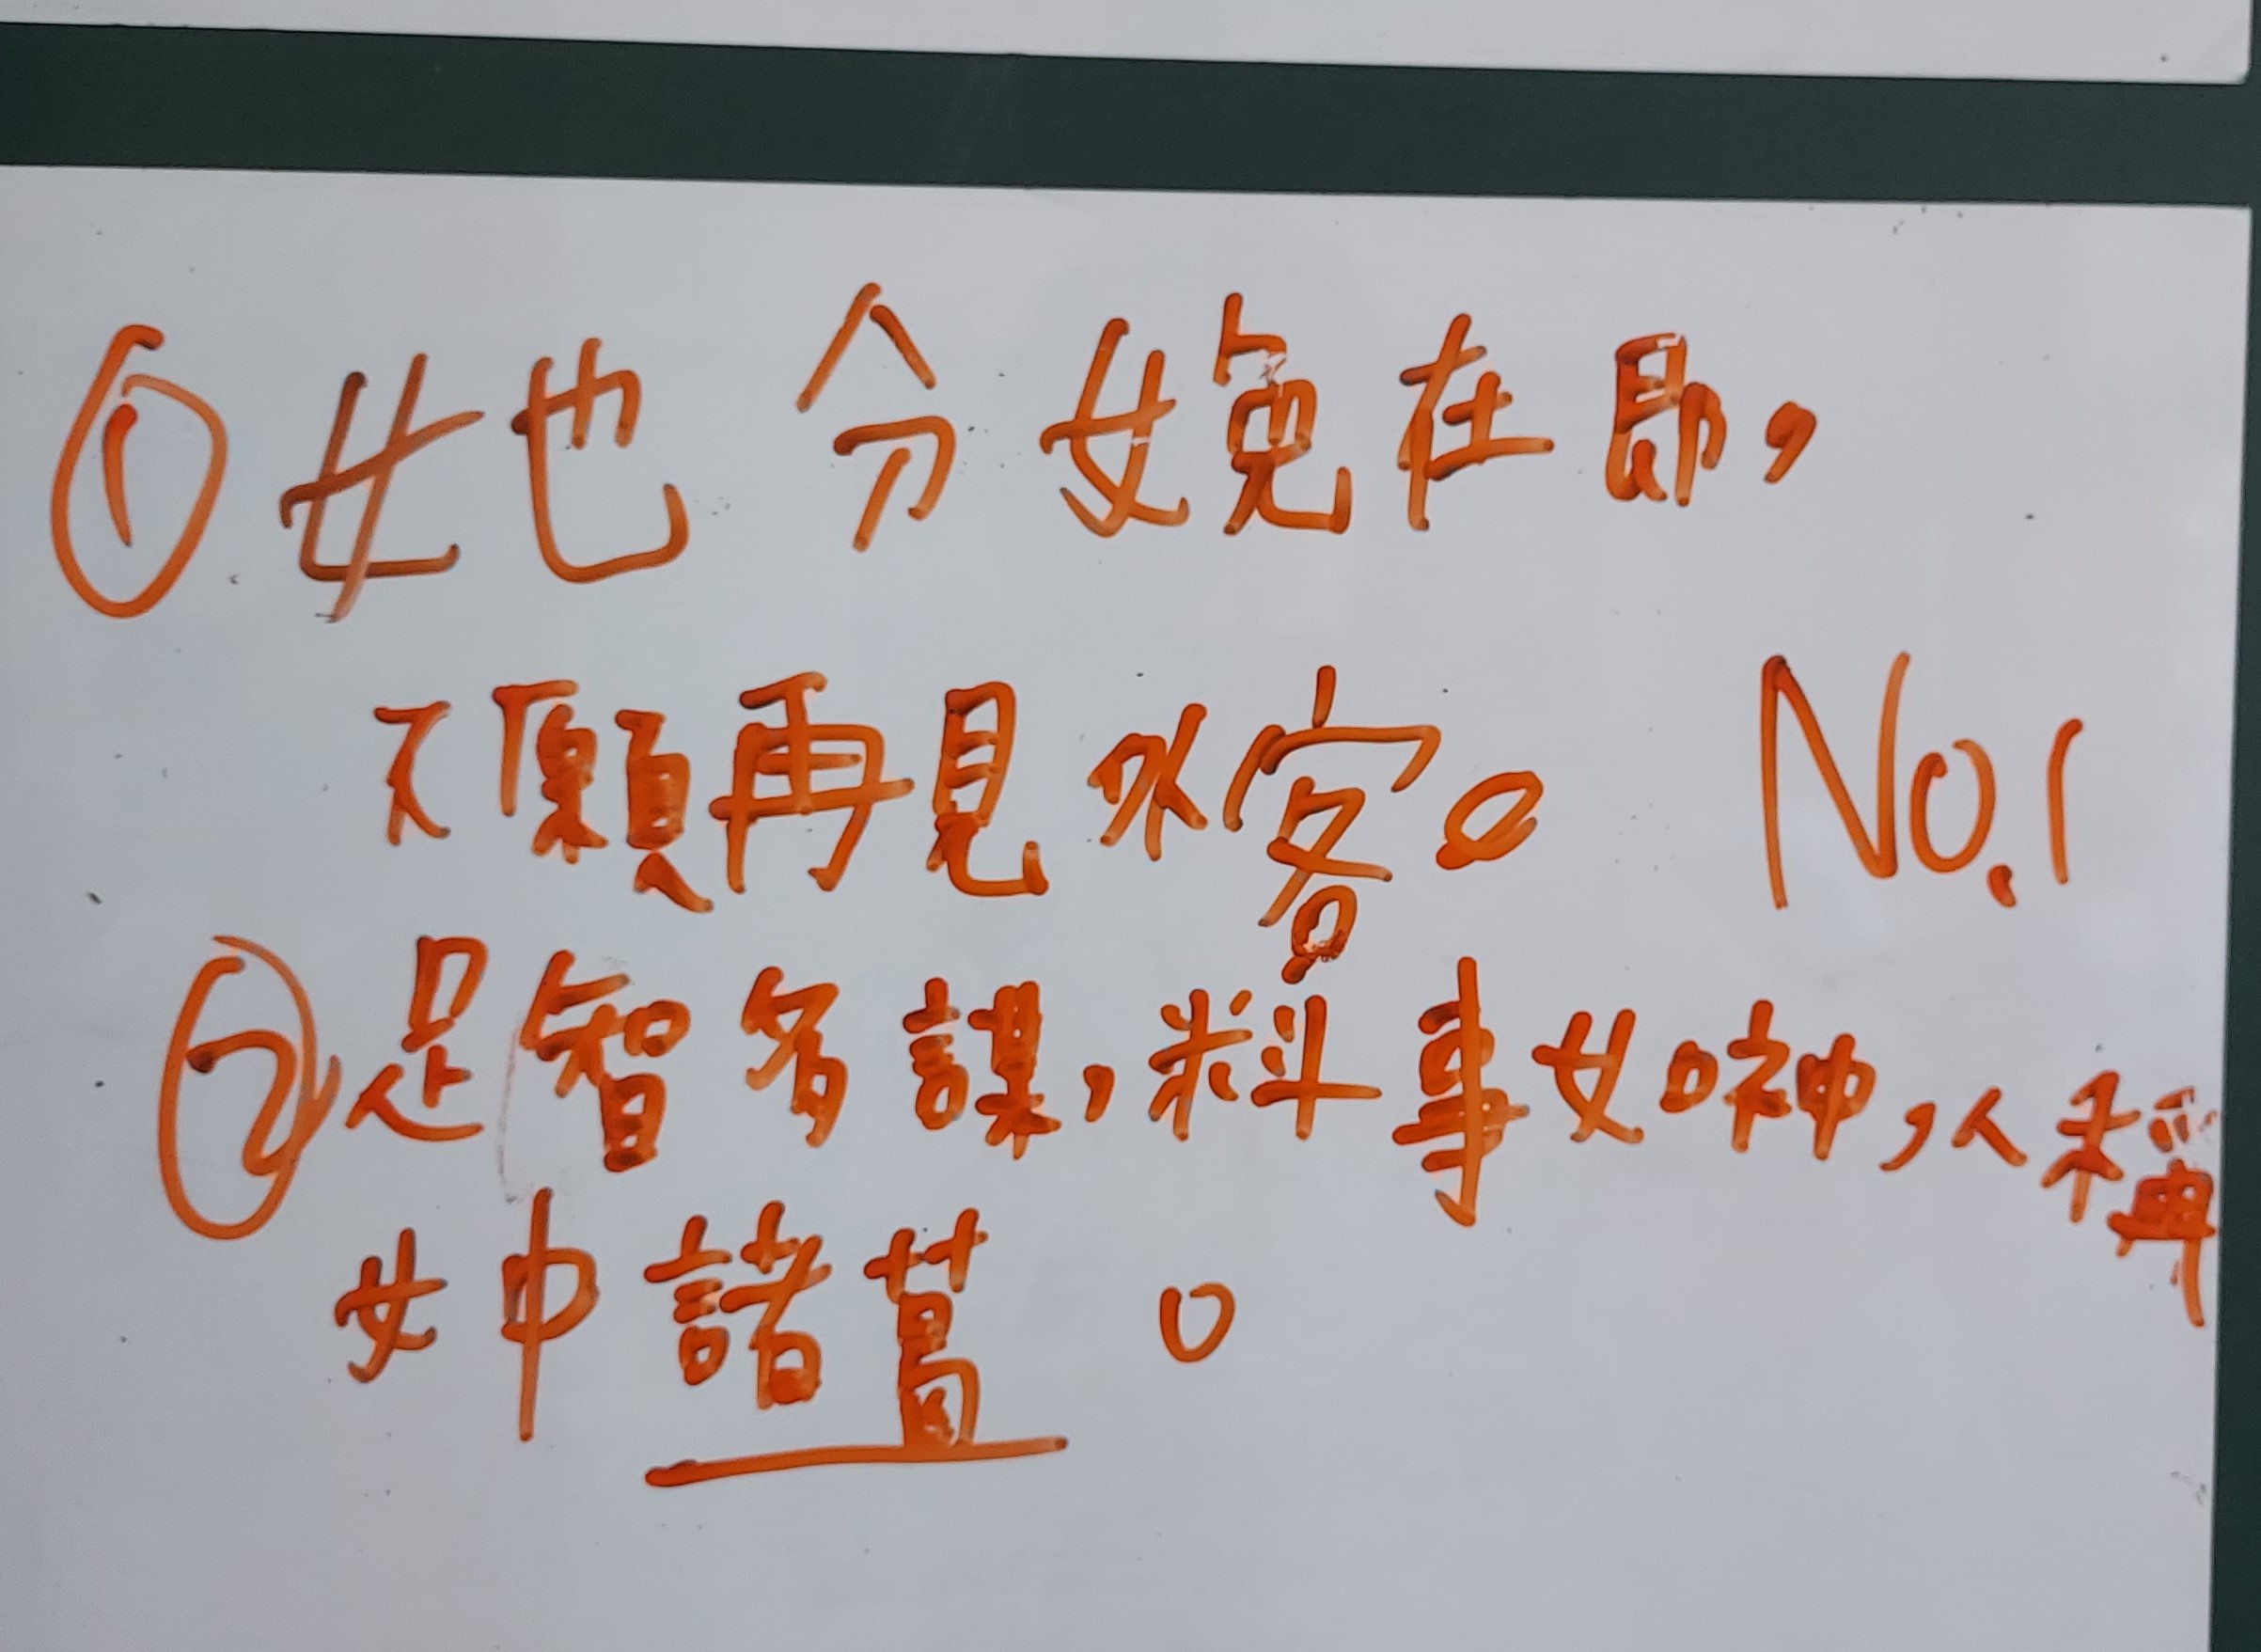 ① 她 分娩在即,
不願再見外客。 No.1
② 足智多謀,料事如神,人稱
女中諸葛。